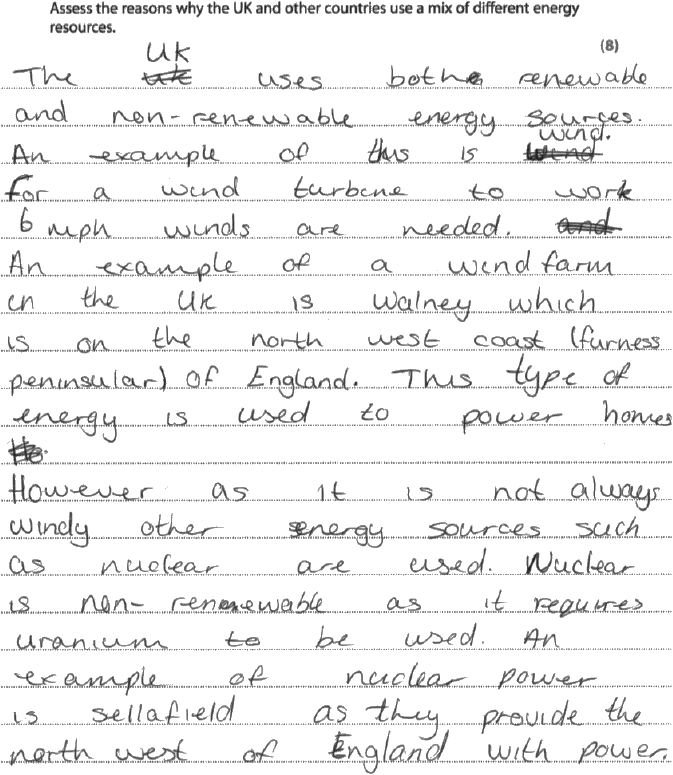 Assess the reasons why the UK and other countries use a mix of different energy
resources.
(8)
The UK uses both renewable
and non-renewable energy sources.
An example of this is wind.
For a wind turbine to work
6 mph winds are needed.
An example of a wind farm
in the UK is Walney which
is on the north west coast (furness
peninsular) of England. This type of
energy is used to power homes
However as it is not always
windy other energy sources such
as nuclear are used. Nuclear
is non-renewable as it requires
uranium to be used. An
example of nuclear power
is sellafield as they provide the
north west of England with power.